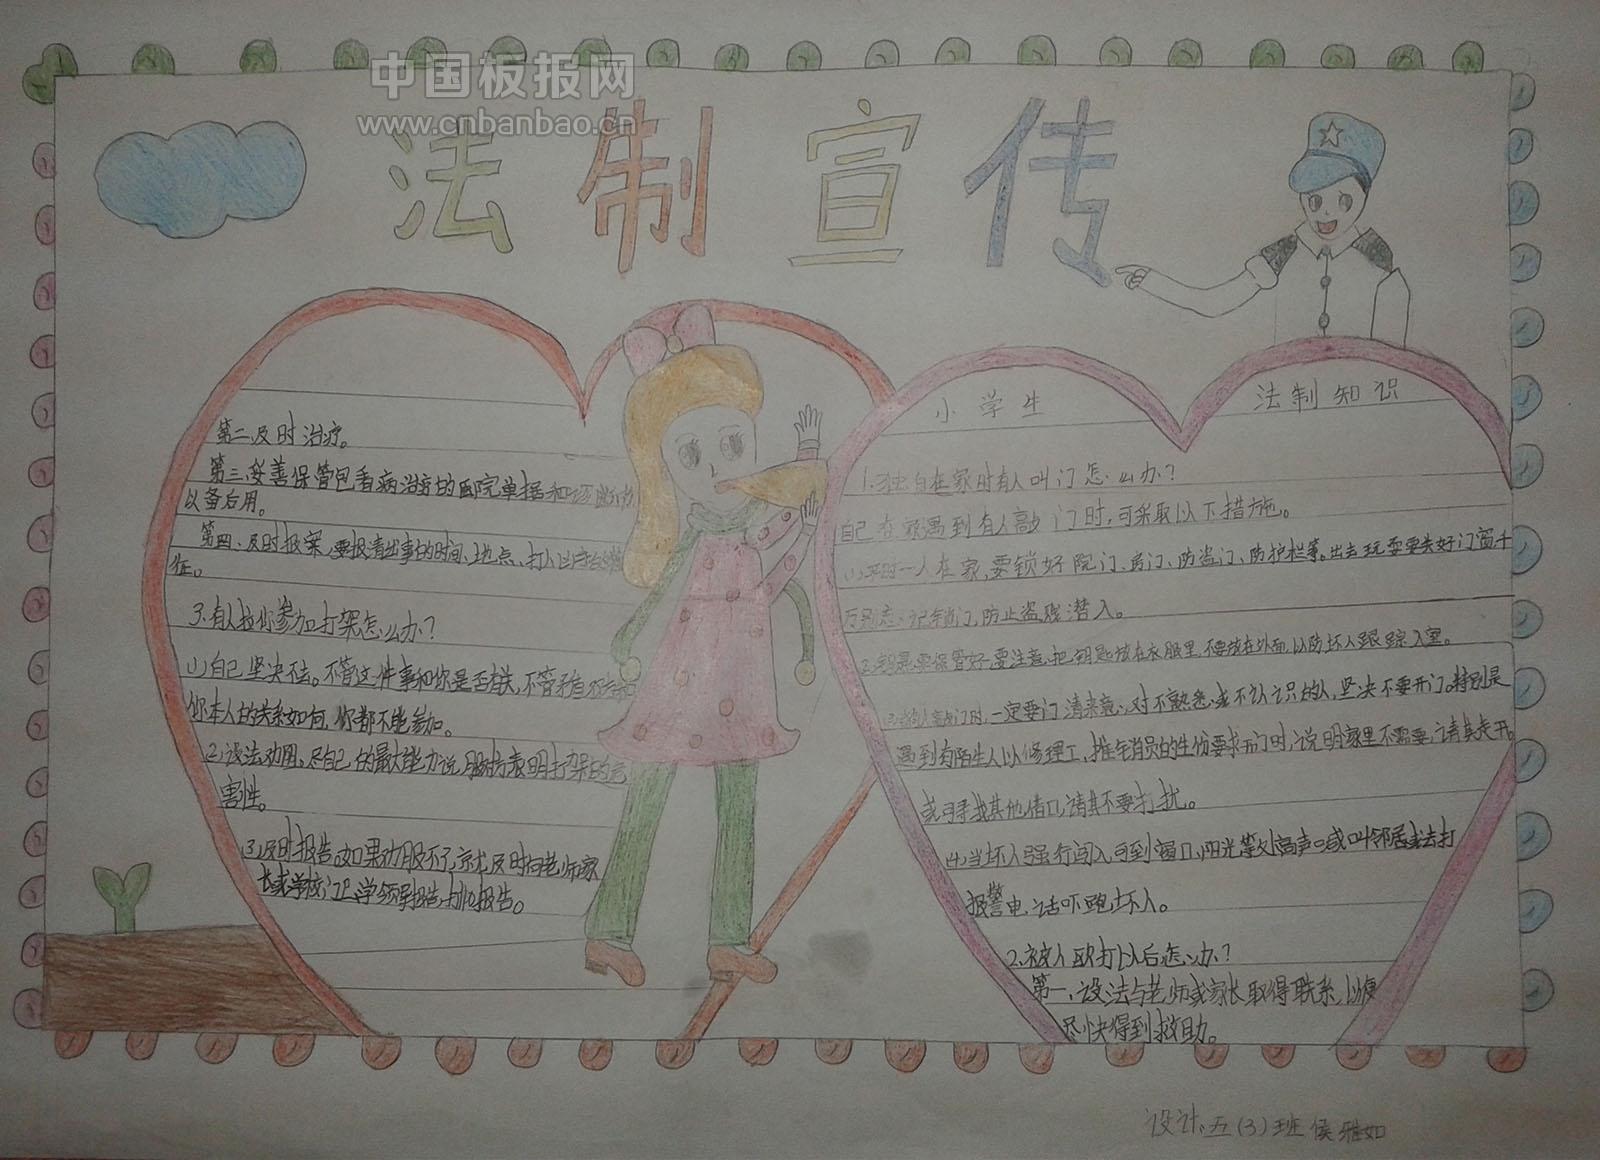 中国板报网
www.cnbanbao.cn
法制宣传
小学生 法制知识
1.独自在家时有人叫门怎么办?
自己在家遇到有人敲门时,可采取以下措施。
(1)平时一人在家,要锁好院门、房门、防盗门、防护栏等。出去玩耍要关好门窗千
万别忘记锁门,防止盗贼潜入。
(2)钥匙要保管好,要注意把钥匙放在衣服里,不要放在外面,以防坏人跟踪入室。
人敲门时,一定要问清来意,对不熟悉或不认识的人,坚决不要开门。特别是
遇到有陌生人以修理工、推销员的身份要求开门时,说明家里不需要,请其走开。
或寻找其他借口,请其不要打扰。
(4)当坏人强行闯入,可到窗口、阳光等处高声喊叫邻居或去打
报警电话吓跑坏人。
2.被人殴打以后怎么办?
第一、设法与老师或家长取得联系,以便
尽快得到救助。
第二、及时治疗。
第三、妥善保管包看病治疗的医院单据和
以备后用。
第四、及时报案,要报清出事的时间、地点、打人
征。
3.有人拉你参加打架怎么办?
(1)自己坚决不去。不管这件事和你是否有关,不管矛盾双方和
你本人的关系如何,你都不能参加。
(2)设法劝阻。尽自己的最大能力说服对方,表明打架的危
害性。
(3)及时报告。如果劝服不了,就及时向老师、家
长或学校门卫、学校领导报告,
设计:五(3)班 侯雅如